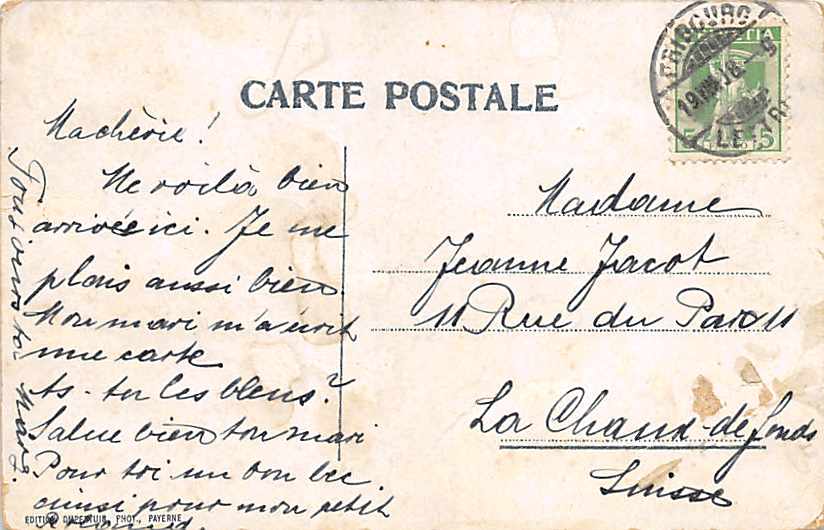 CARTE POSTALE
HELVETIA
5 5
FRIBOURG
LETTR
Ma chérie!
Me voilà bien
arrivée ici. Je me
plais aussi bien.
Mon mari m'a écrit
une carte
As-tu les bleus?
Salue bien ton mari
Pour toi un bon bec
ainsi pour mon petit
Toujours ta
Madame
Jeanne Jacot
11 Rue du Parc 11
La Chaux-de-fonds
Suisse
EDITION DUPERTUIS, PHOT., PAYERNE